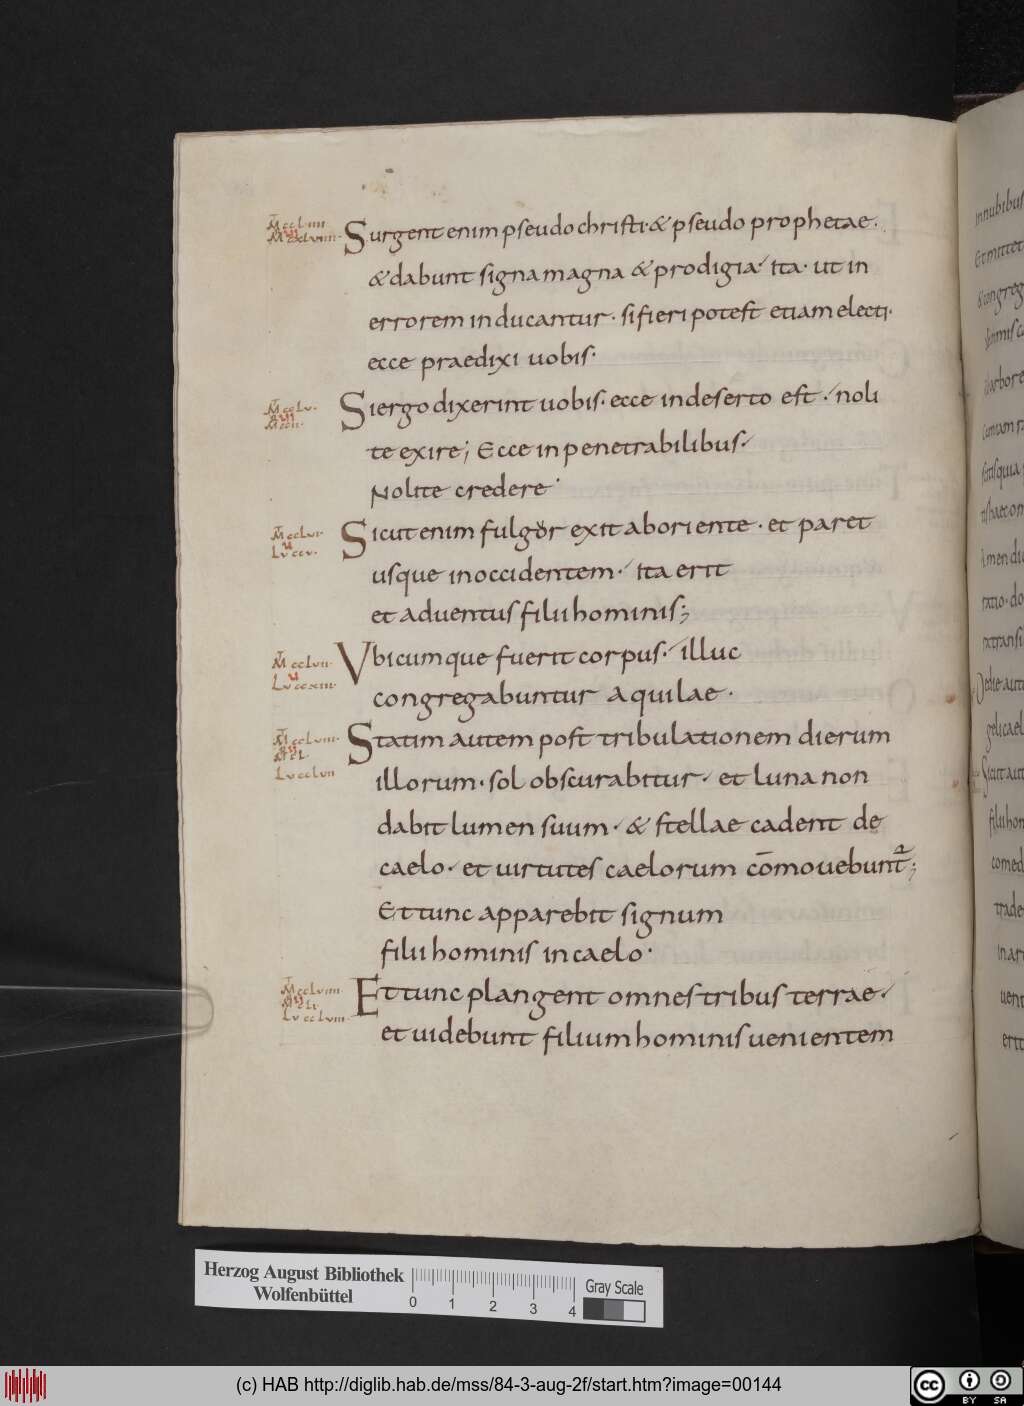 Surgent enim pseudo christi · & pseudo prophetae ·
& dabunt signa magna & prodigia · ita · ut in
errorem inducantur · si fieri potest etiam electi ·
ecce praedixi uobis ·
Si ergo dixerint uobis · ecce in deserto est · noli
te exire ; Ecce in penetrabilibus ·
Nolite credere ·
Sicut enim fulgor exit ab oriente · et paret
usque in occidentem · ita erit
et aduentus filii hominis ;
Vbicumque fuerit corpus · illuc
congregabuntur aquilae ·
Statim autem post tribulationem dierum
illorum · sol obscurabitur · et luna non
dabit lumen suum · & stellae cadent de
caelo · et uirtutes caelorum cōmouebunt ;
Et tunc apparebit signum
filii hominis in caelo ·
Et tunc plangent omnes tribus terrae ·
et uidebunt filium hominis uenientem
in nubibus
Et mittet
& congreg
arbore
Amen di
Sicut aut
filii hom
comed
trade
uent
Herzog August Bibliothek
Wolfenbüttel
0 1 2 3 4
Gray Scale
(c) HAB http://diglib.hab.de/mss/84-3-aug-2f/start.htm?image=00144
cc BY SA